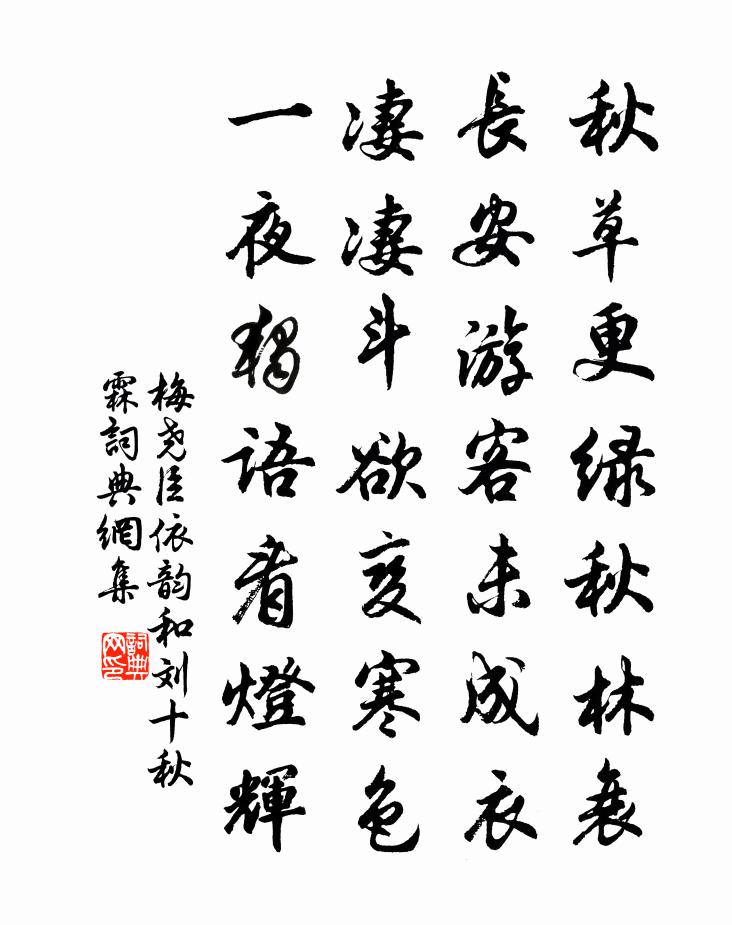 秋草更绿秋林衰
長安游客未成衣
凄凄斗欲变寒色
一夜独语看燈輝
梅尧臣依韵和刘十秋
霖詞典網集
詞典网印